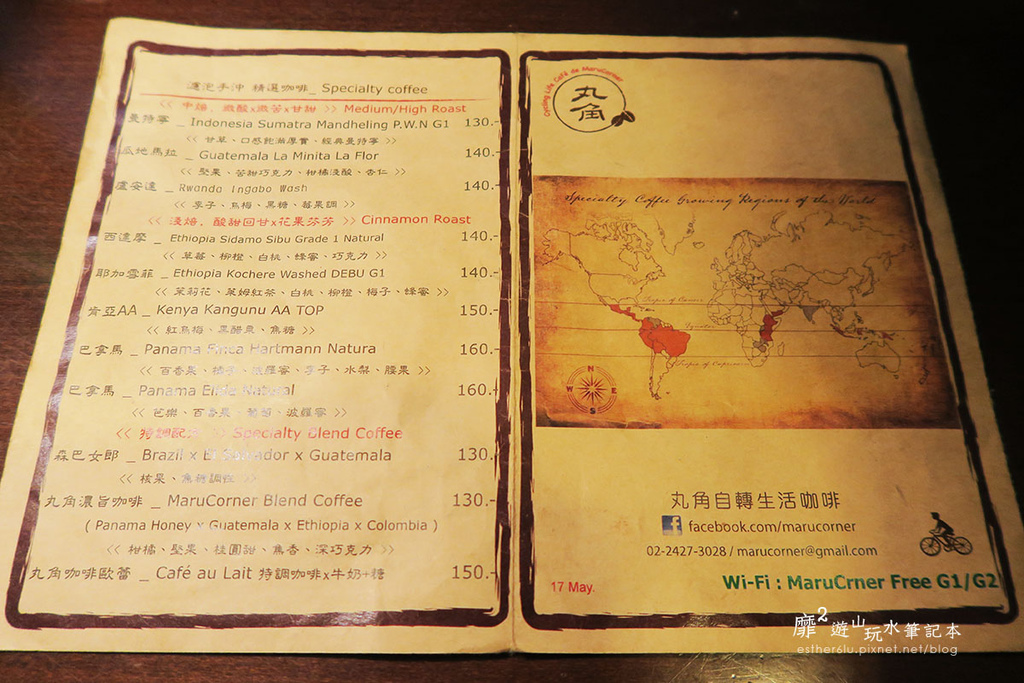 濾泡手沖 精選咖啡_ Specialty coffee
<< 中焙、微酸x微苦x甘甜 >> Medium/High Roast
曼特寧 _ Indonesia Sumatra Mandheling P.W.N G1 130.-
<< 甘草、口感飽滿厚實、經典曼特寧 >>
瓜地馬拉 _ Guatemala La Minita La Flor 140.-
<< 堅果、苦甜巧克力、柑橘淺酸、杏仁 >>
盧安達 _ Rwanda Ingabo Wash 140.-
<< 李子、烏梅、黑糖、莓果調 >>
<< 淺焙、酸甜回甘x花果芬芳 >> Cinnamon Roast
西達摩 _ Ethiopia Sidamo Sibu Grade 1 Natural 140.-
<< 草莓、柳橙、白桃、蜂蜜、巧克力 >>
耶加雪菲 _ Ethiopia Kochere Washed DEBU G1 140.-
<< 茉莉花、萊姆紅茶、白桃、柳橙、梅子、蜂蜜 >>
肯亞AA _ Kenya Kangunu AA TOP 150.-
<< 紅烏梅、黑醋栗、焦糖 >>
巴拿馬 _ Panama Finca Hartmann Natura 160.-
<< 百香果、橘子、波羅蜜、李子、水梨、腰果 >>
巴拿馬 _ Panama Elida Natural 160.-
<< 芭樂、百香果、葡萄、波羅蜜 >>
<< 特調配方 >> Specialty Blend Coffee
森巴女郎 _ Brazil x El Salvador x Guatemala 130.-
<< 核果、焦糖調性 >>
丸角濃旨咖啡 _ MaruCorner Blend Coffee 130.-
( Panama Honey x Guatemala x Ethiopia x Colombia )
<< 柑橘、堅果、桂圓甜、焦香、深巧克力 >>
丸角咖啡歐蕾 _ Café au Lait 特調咖啡x牛奶+糖 150.-
Cycling Life Café de MaruCorner
丸角
Specialty Coffee Growing Regions of the World
Tropic of Cancer
Equator
Tropic of Capricorn
N
W E
S
丸角自轉生活咖啡
f facebook.com/marucorner
02-2427-3028 / marucorner@gmail.com
17 May.
Wi-Fi : MaruCrner Free G1/G2
靡2遊山玩水筆記本
esther6lu.pixnet.net/blog